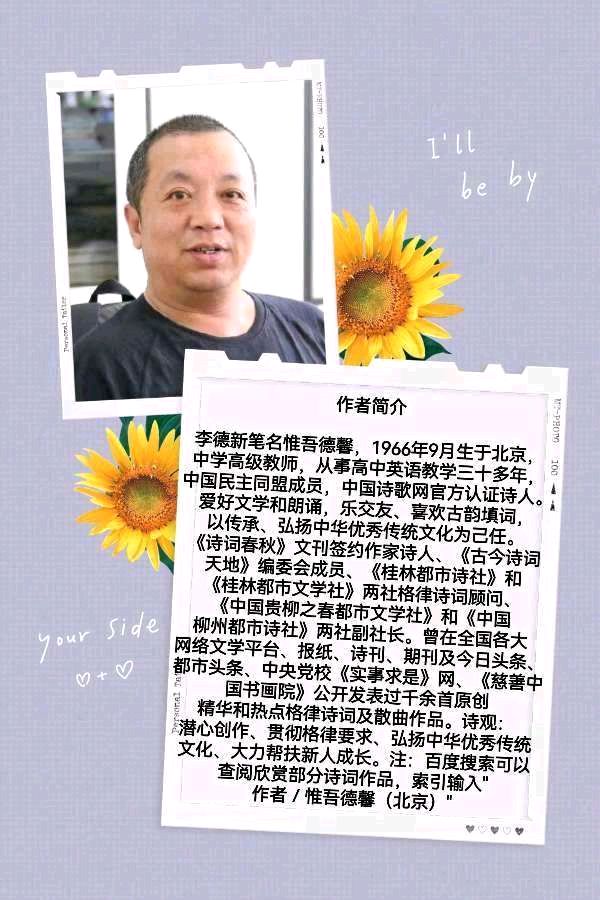 M7-P8070 100
I'll
be by
Personal Tattee
作者简介
李德新笔名惟吾德馨，1966年9月生于北京，
中学高级教师，从事高中英语教学三十多年，
中国民主同盟成员，中国诗歌网官方认证诗人。
爱好文学和朗诵，乐交友、喜欢古韵填词，
以传承、弘扬中华优秀传统文化为己任。
《诗词春秋》文刊签约作家诗人、《古今诗词
天地》编委会成员、《桂林都市诗社》和
《桂林都市文学社》两社格律诗词顾问、
《中国贵柳之春都市文学社》和《中国
柳州都市诗社》两社副社长。曾在全国各大
网络文学平台、报纸、诗刊、期刊及今日头条、
都市头条、中央党校《实事求是》网、《慈善中
国书画院》公开发表过千余首原创
精华和热点格律诗词及散曲作品。诗观：
潜心创作、贯彻格律要求、弘扬中华优秀传统
文化、大力帮扶新人成长。注：百度搜索可以
查阅欣赏部分诗词作品，索引输入"
作者 / 惟吾德馨（北京）"
M7-P8070 100
your side
Personal